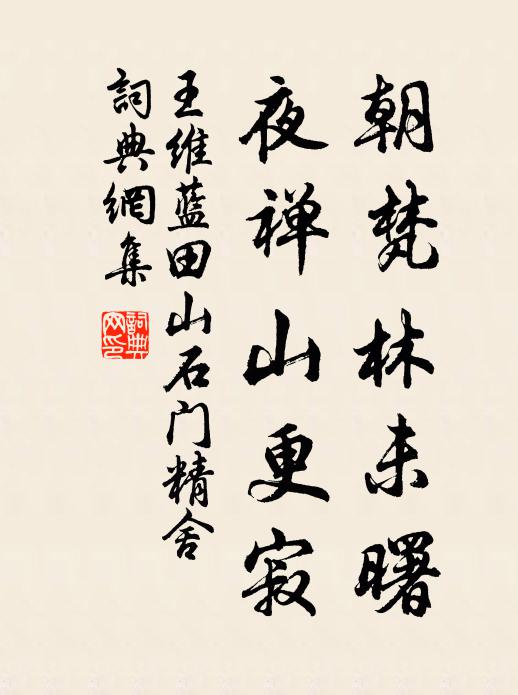 朝梵林未曙
夜禅山更寂
王维蓝田山石门精舍
詞典網集
詞典网印